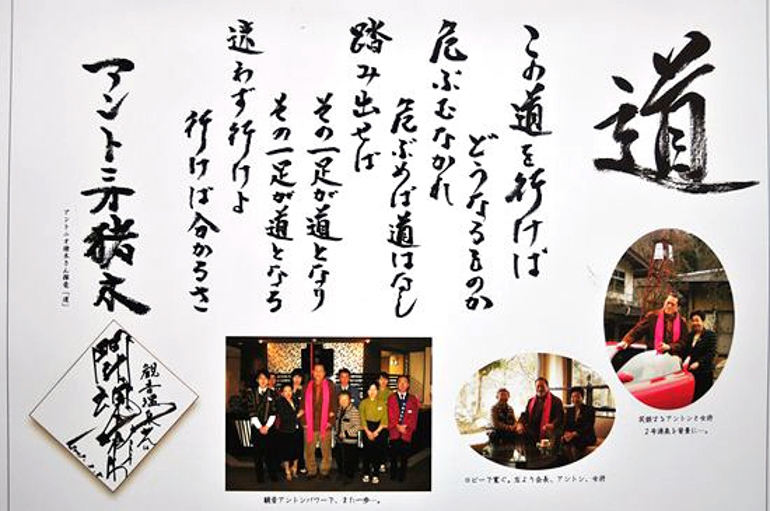 道
この道を行けば
どうなるものか
危ぶむなかれ
危ぶめば道はなし
踏み出せば
その一足が道となり
その一足が道となる
迷わず行けよ
行けば分かるさ
アントニオ猪木
アントニオ猪木さん揮毫「道」
するアントンと女将
2号源泉を背景に…。
ロビーで寛ぐ。左より会長、アントン、女将
観音アントンパワーで、また一歩…。
観音温泉さん江
闘魂